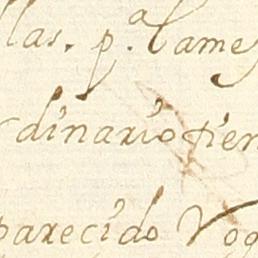 llas. p.ª la me
dinario tien
parecido Vog